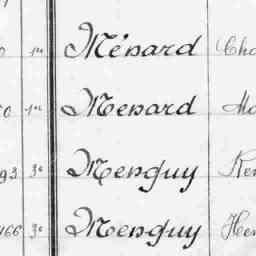 0 1re Ménard Cha
50 1re Menard Ma
93 3e Menguy Ker
466 3e Menguy Hen